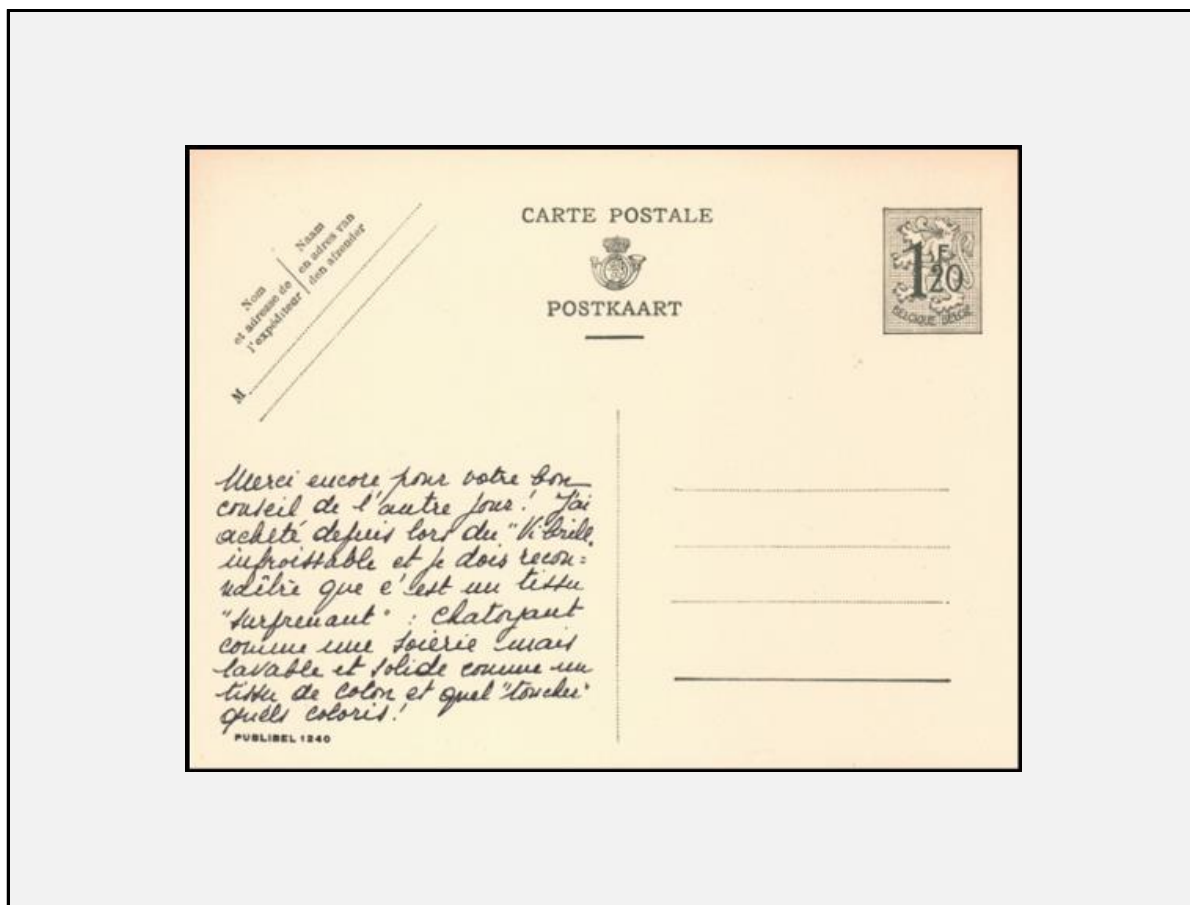 CARTE POSTALE
POSTKAART
Nom
et adresse de
l'expéditeur
Naam
en adres van
den afzender
M
1F20
BELGIQUE BELGIË
Merci encore pour votre bon
conseil de l'autre jour! J'ai
acheté depuis lors du "Vibrile,
infroissable et je dois recon=
naître que c'est un tissu
"surprenant" : chatoyant
comme une soierie mais
lavable et solide comme un
tissu de coton et quel "toucher"
quels coloris!
PUBLIBEL 1240